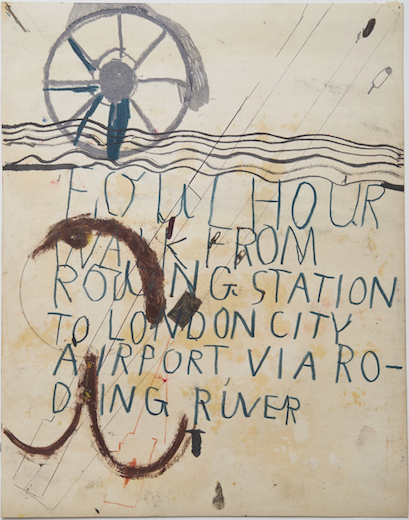 HOUR
WALK FROM
RODING STATION
TO LONDON CITY
AIRPORT VIA RO-
DING RIVER